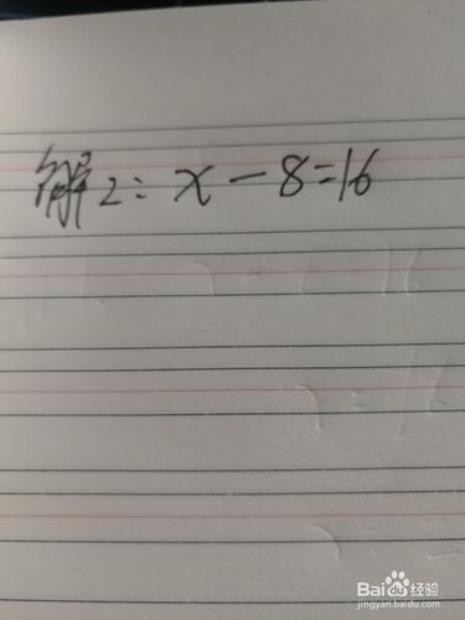 解2: x-8=16
Baidu经验
jingyan.baidu.com